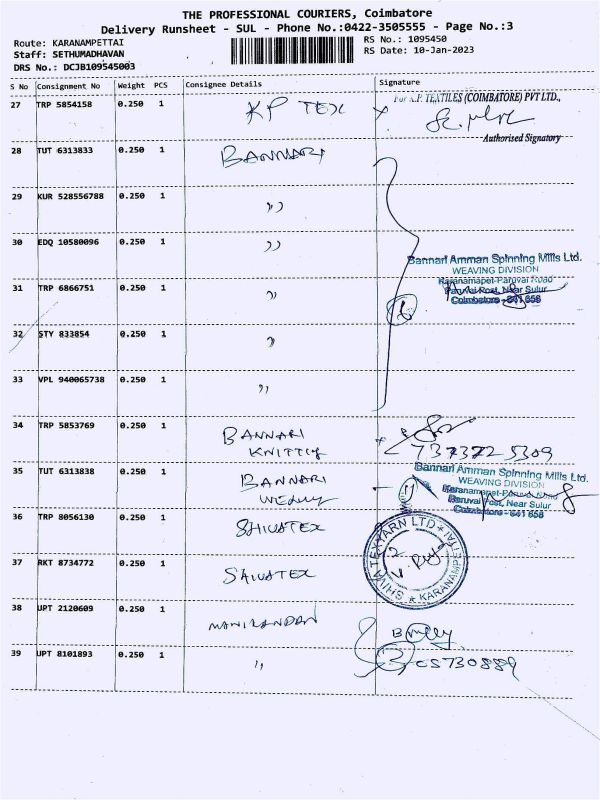 THE PROFESSIONAL COURIERS, Coimbatore
Delivery Runsheet - SUL - Phone No.:0422-3505555 - Page No.:3
Route: KARANAMPETTAI
RS No.: 1095450
Staff: SETHUMADHAVAN
RS Date: 10-Jan-2023
DRS No.: DCJB109545003
S No Consignment No Weight PCS Consignee Details Signature
27 TRP 5854158 0.250 1 KP TEX
For K.P. TEXTILES (COIMBATORE) PVT LTD.,
Authorised Signatory
28 TUT 6313833 0.250 1 BANNARI
29 KUR 528556788 0.250 1 ,,
30 EDQ 10580096 0.250 1 ,,
Bannari Amman Spinning Mills Ltd.
WEAVING DIVISION
Karanamapet-Paruvai Road
31 TRP 6866751 0.250 1 ,,
Paruvai Post, Near Sulur
Coimbatore - 641 658
6
32 STY 833854 0.250 1 ,,
33 VPL 940065738 0.250 1 ,,
34 TRP 5853769 0.250 1 BANNARI
KNITTING
7373725309
35 TUT 6313838 0.250 1 BANNARI
Bannari Amman Spinning Mills Ltd.
WEAVING DIVISION
Karanamapet-Paruvai Road
Paruvai Post, Near Sulur
Coimbatore - 641 658
36 TRP 8056130 0.250 1 SHIVATEX
SHIVA TEXYARN LTD
KARANAMPETTAI
2
37 RKT 8734772 0.250 1 SHIVATEX
38 UPT 2120609 0.250 1 MANIKANDAN
39 UPT 8101893 0.250 1 ,,